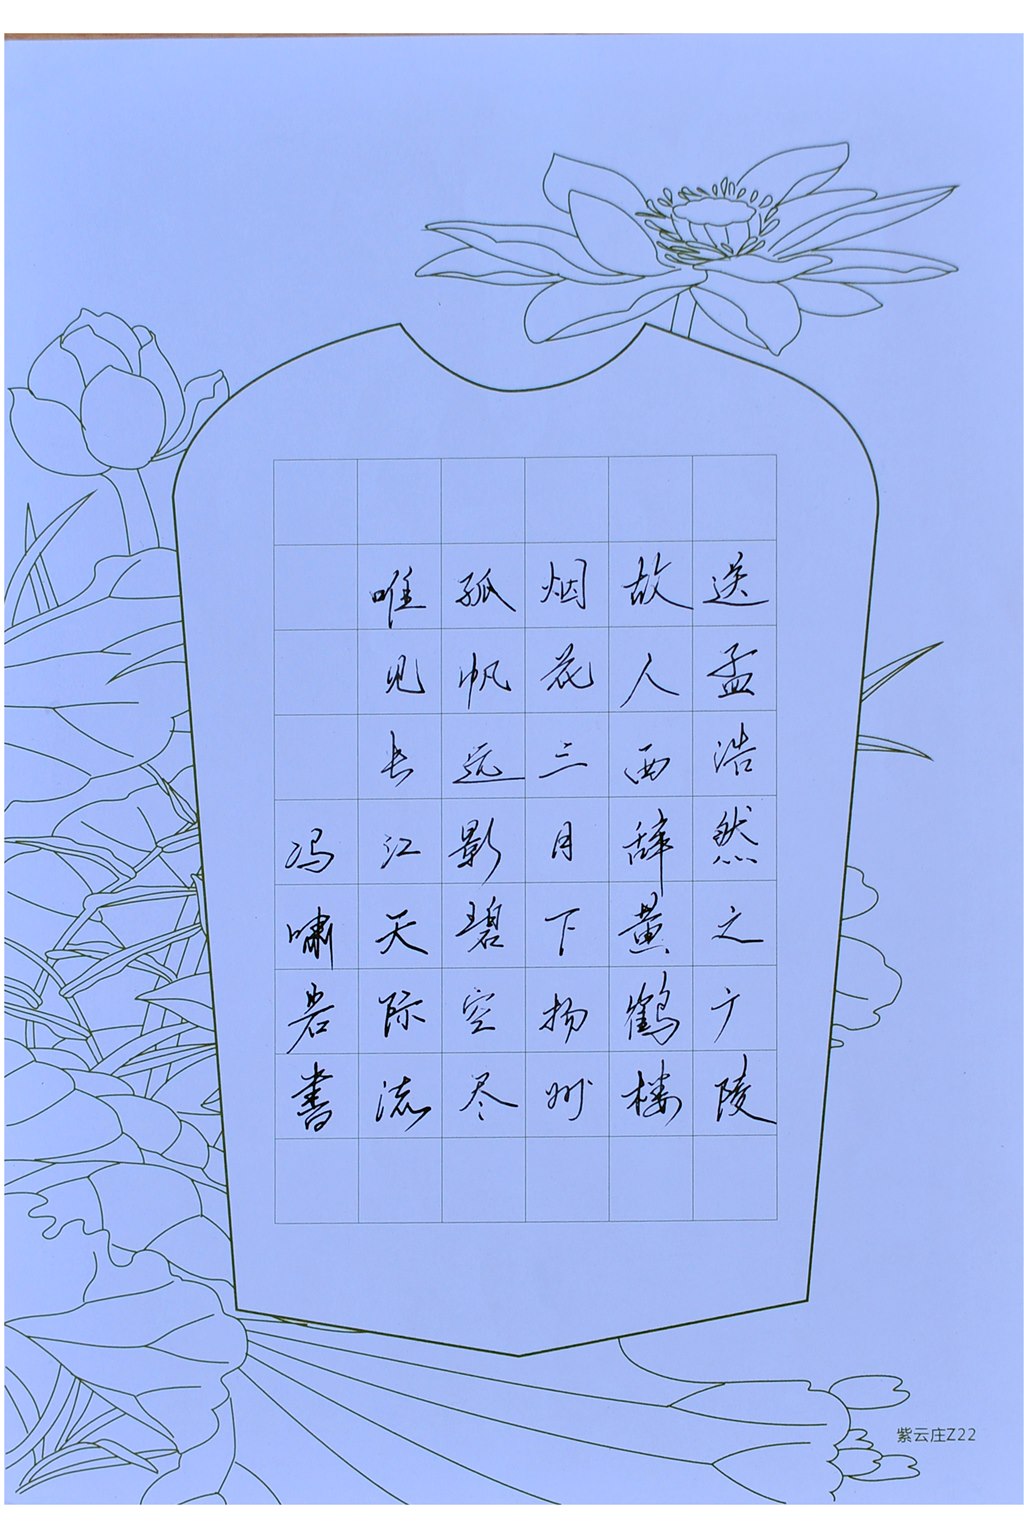 送孟浩然之广陵
故人西辞黄鹤楼
烟花三月下扬州
孤帆远影碧空尽
唯见长江天际流
冯啸岩书
紫云庄Z22